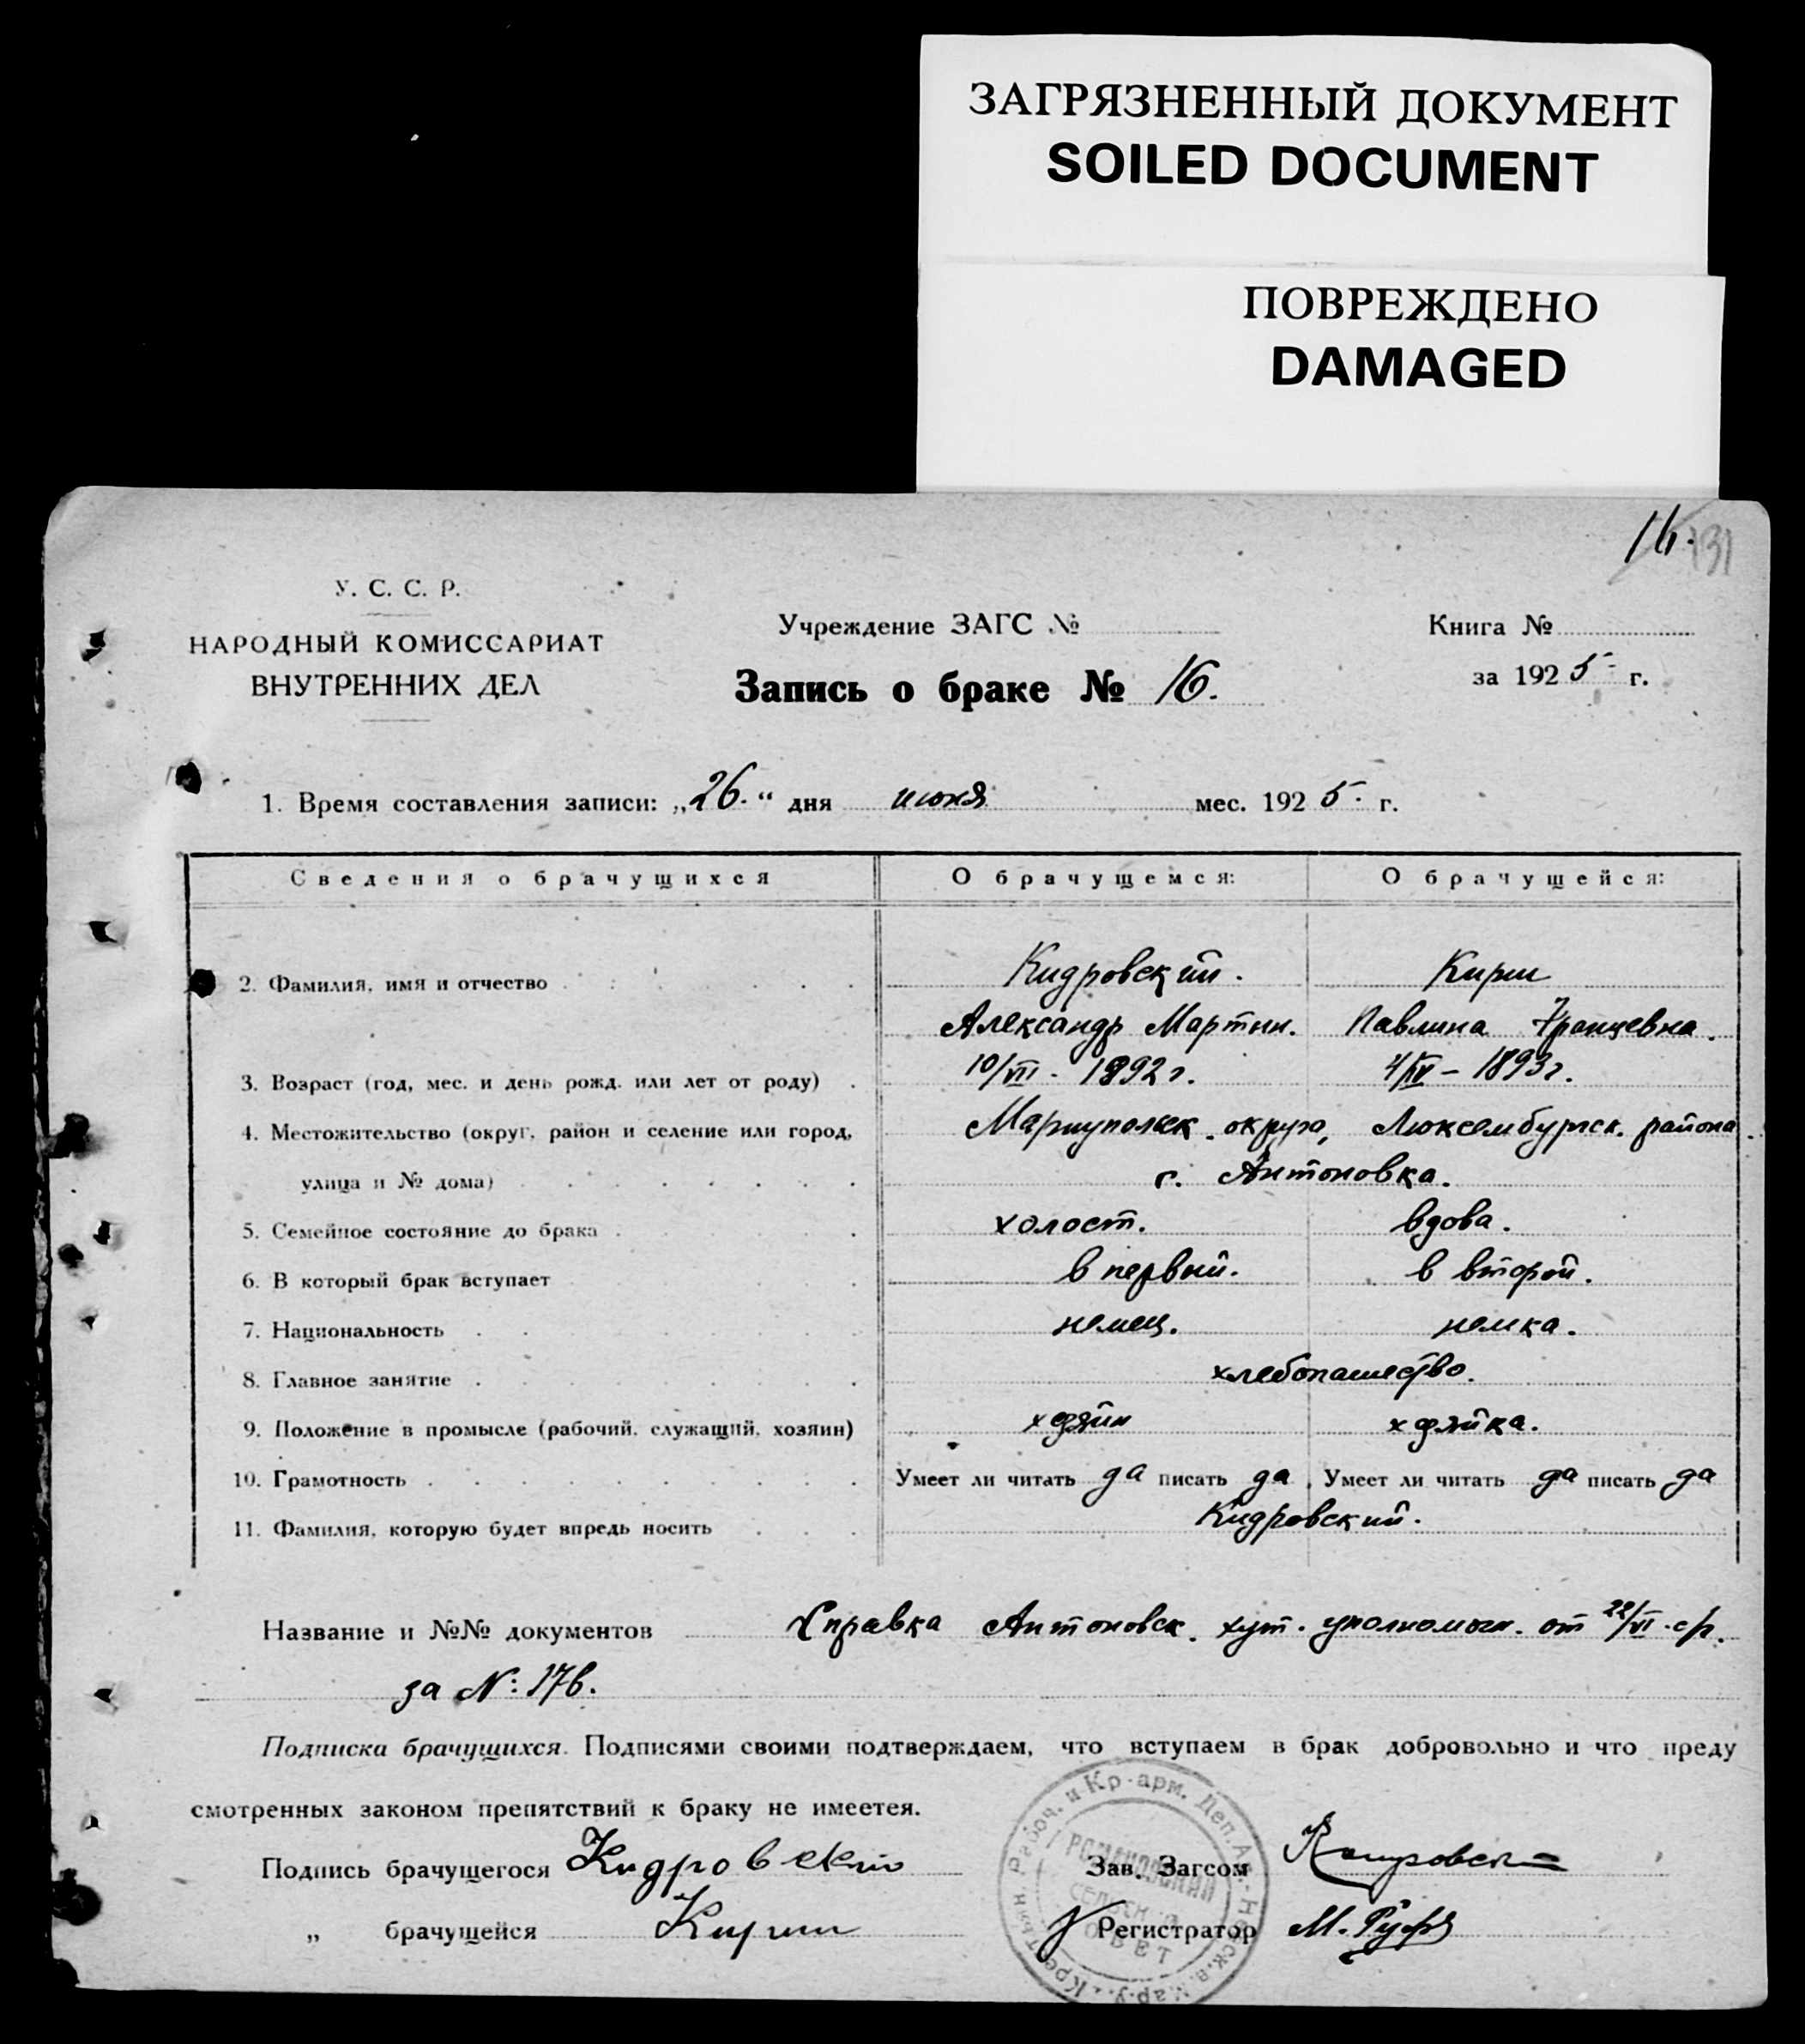 ЗАГРЯЗНЕННЫЙ ДОКУМЕНТ
SOILED DOCUMENT
ПОВРЕЖДЕНО
DAMAGED
16. 131
У. С. С. Р.
НАРОДНЫЙ КОМИССАРИАТ
ВНУТРЕННИХ ДЕЛ
Учреждение ЗАГС №
Запись о браке № 16.
Книга №
за 1925 г.
1. Время составления записи: „26.“ дня июня мес. 1925. г.
Сведения о брачущихся О брачущемся: О брачущейся:
2. Фамилия, имя и отчество Кидровский. Кирш
Александр Мартын. Павлина Францевна.
3. Возраст (год, мес. и день рожд. или лет от роду) 10/VII - 1892 г. 4/IV - 1893 г.
4. Местожительство (округ, район и селение или город, Мариупольск. округа, Люксембургск. района.
улица и № дома) с. Антоновка.
5. Семейное состояние до брака холост. вдова.
6. В который брак вступает в первый. в второй.
7. Национальность немец. немка.
8. Главное занятие хлебопашество.
9. Положение в промысле (рабочий, служащий, хозяин) хозяйн хозяйка.
10. Грамотность Умеет ли читать да писать да Умеет ли читать да писать да
11. Фамилия, которую будет впредь носить Кидровский.
Название и №№ документов Справка Антоновск. хут. уполномоч. от 22/VI - с/г.
за №: 176.
Подписка брачущихся. Подписями своими подтверждаем, что вступаем в брак добровольно и что преду
смотренных законом препятствий к браку не имеетея.
Подпись брачущегося Кидровский Зав. Загсом
„ брачущейся Кирш Регистратор М.
Рабоч. и Кр-арм. Деп.
РОМАНОВСКИЙ
СЕЛЬСК
СОВЕТ